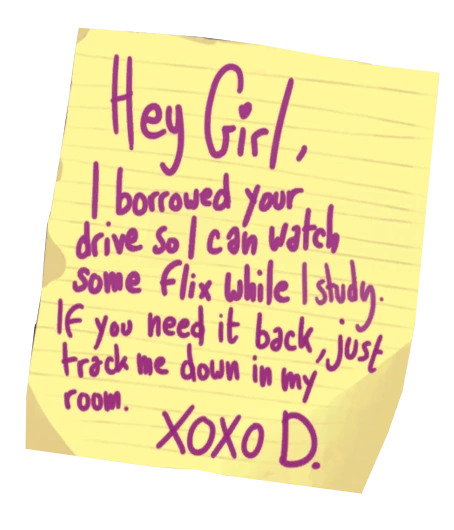 Hey Girl,
I borrowed your
drive so I can watch
some flix while I study.
If you need it back, just
track me down in my
room.
XOXO D.